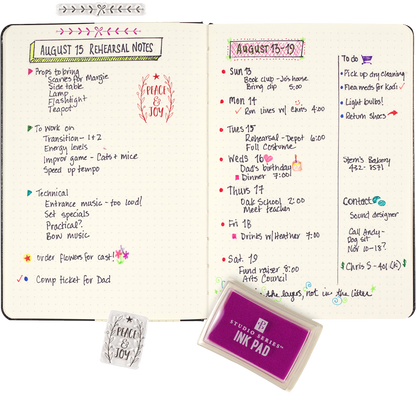 AUGUST 15 REHEARSAL NOTES
Props to bring
Scenes for Margie
Side table
Lamp
Flashlight
Teapot
PEACE
&
JOY
To work on
Transition - 1+2
Energy levels
Improv game - Cats + mice
Speed up tempo
Technical
Entrance music - too loud!
Set specials
Practical?
Bow music
Order flowers for cast!
Comp ticket for Dad
AUGUST 13-19
Sun 13
Book club - Jo's house
Bring dip 5:00
Mon 14
Run lines w/ Chris 4:00
Tues 15
Rehearsal - Depot 6:00
Full Costume
Weds 16
Dad's birthday
Dinner 7:00
Thurs 17
Oak School 2:00
Meet teacher
Fri 18
Drinks w/ Heather 7:00
Sat. 19
Fund raiser 8:00
Arts Council
in the layers, not in the litter
To do
Pick up dry cleaning
Flea meds for Kali
Light bulbs!
Return Shoes
Stern's Bakery
Contact
Sound designer
Call Andy -
Dog sit
Nov 10-18?
PEACE
&
JOY
STUDIO SERIES
INK PAD